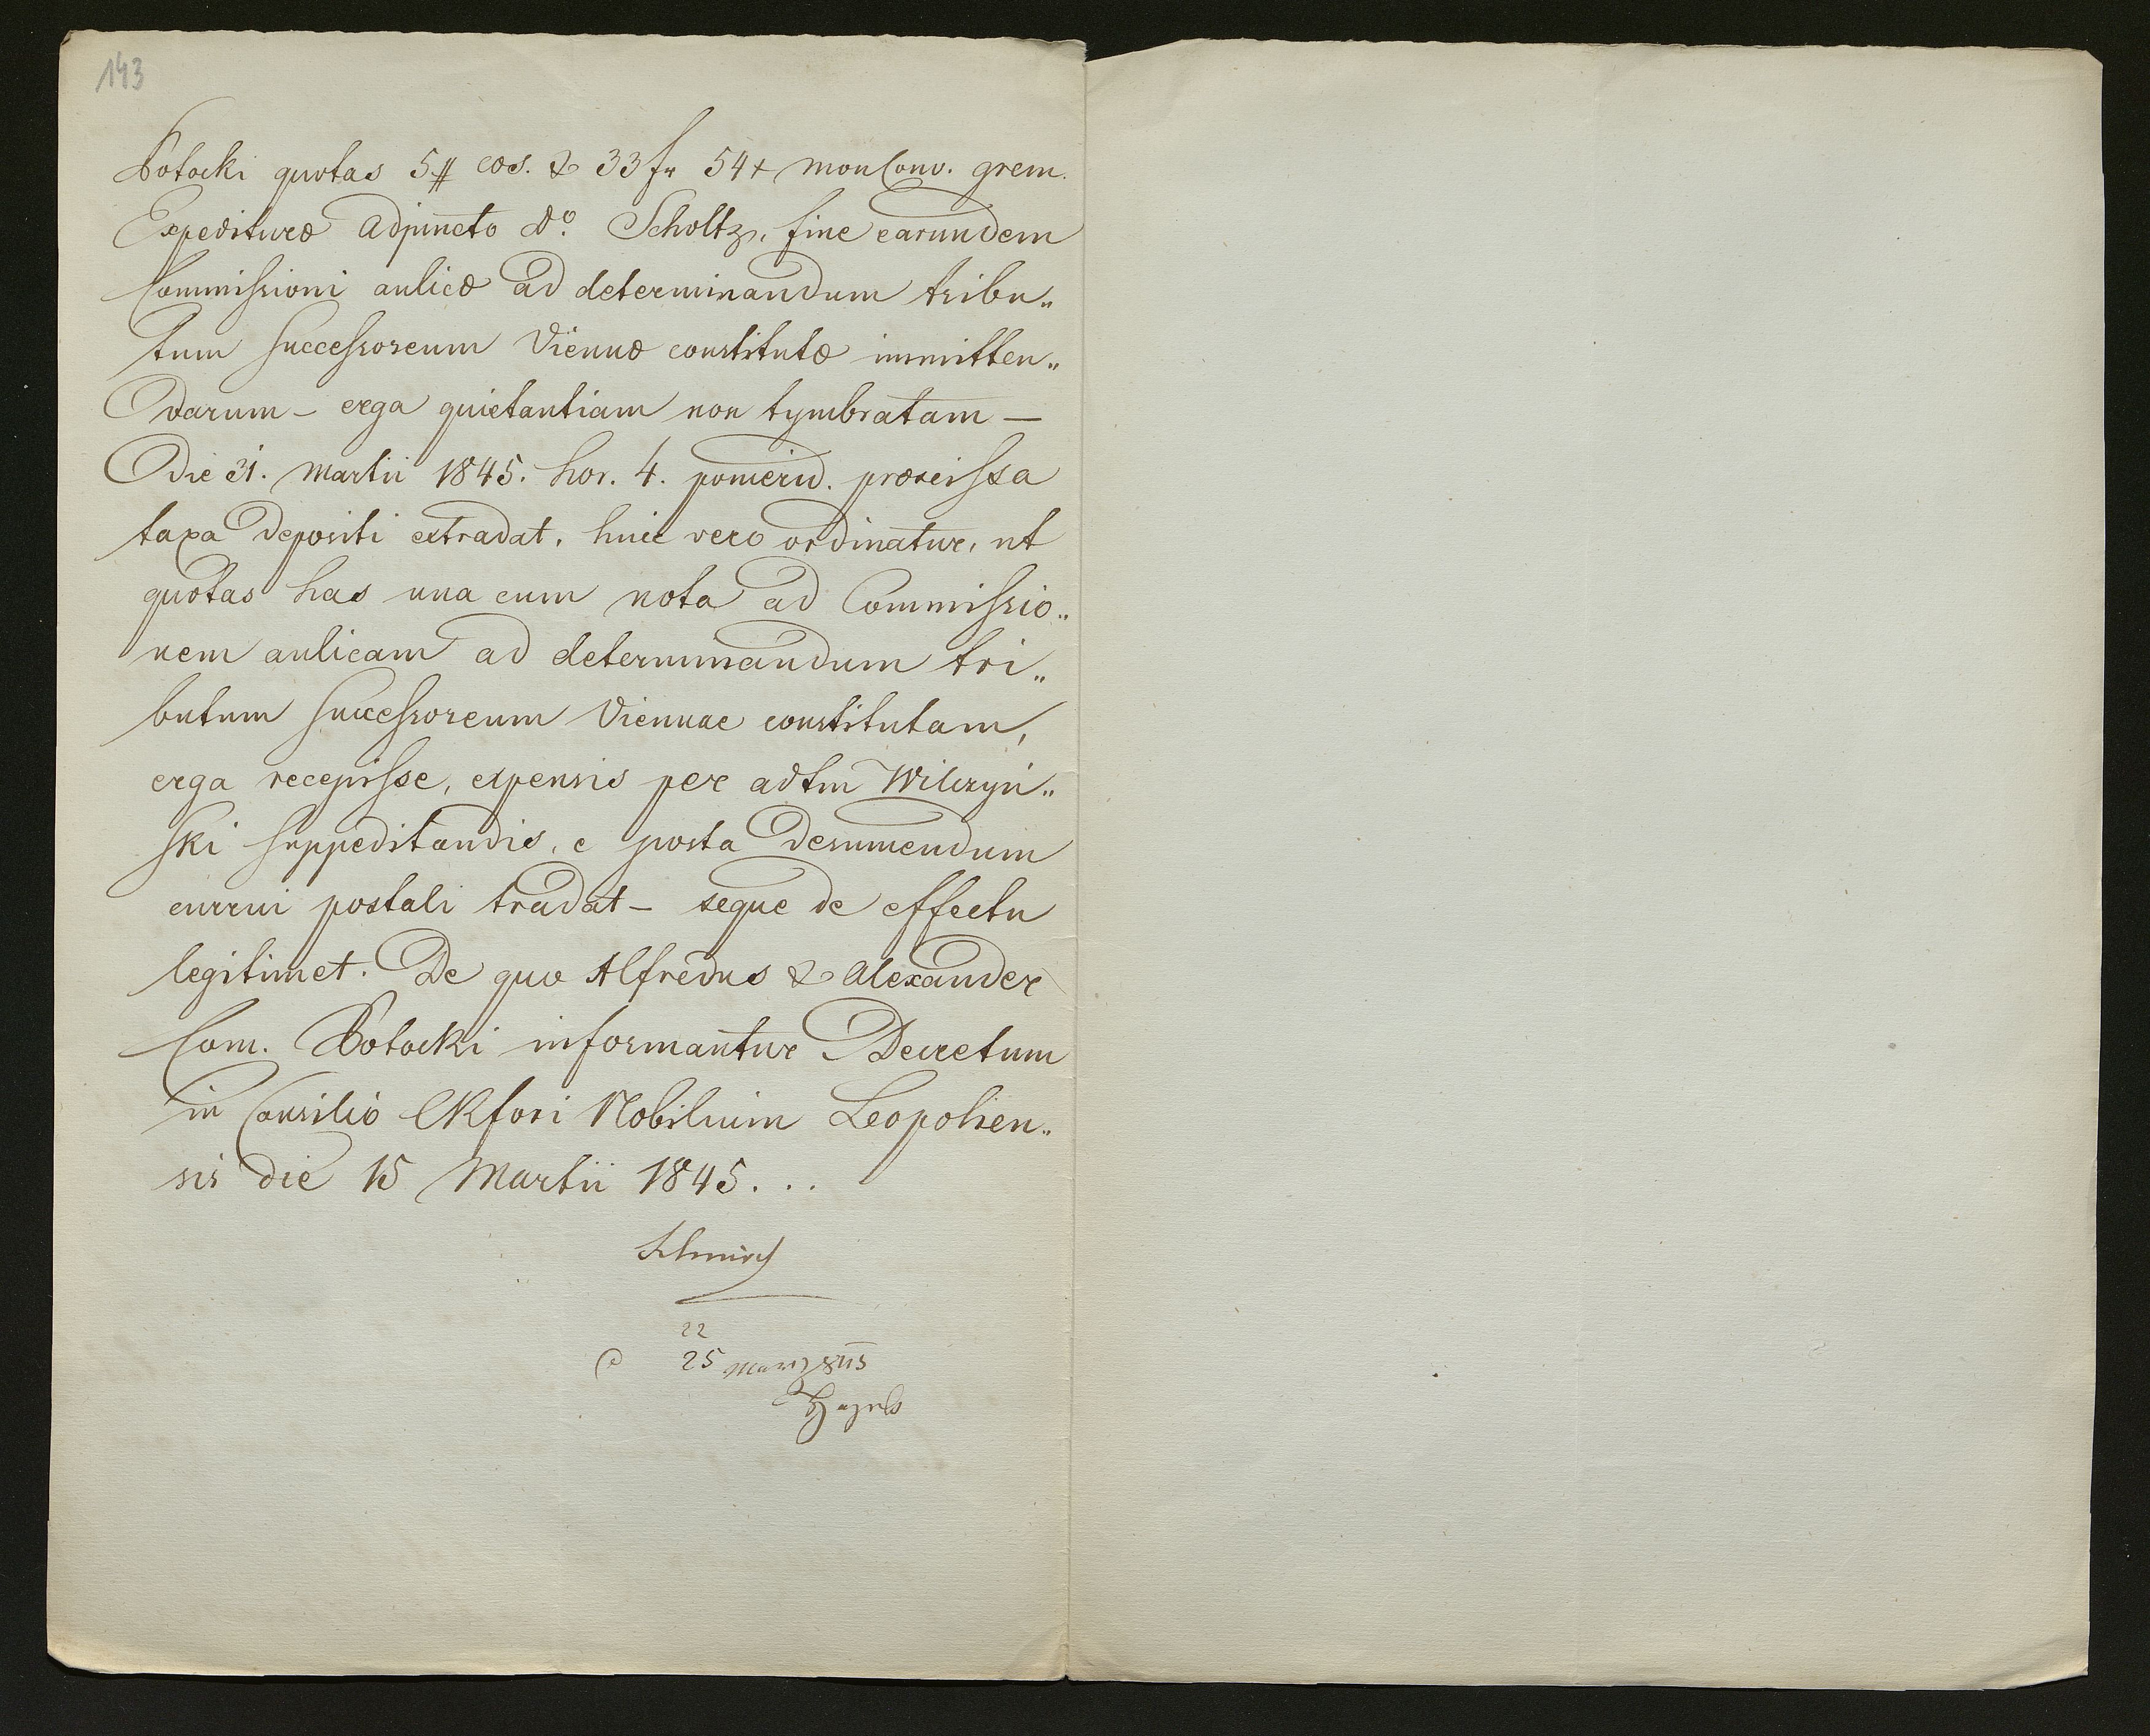 143
Potocki quotas 5# cos. & 33 fr 54x mon Conv. grem.
Expedituræ Adjuncto Do. Scholtz, fine earundem
Commissioni aulicæ ad determinandum tribu„
tum successoreum Viennæ constitutæ immitten„
darum – erga quietantiam non tymbratam –
Die 31. Martii 1845. hor. 4. pomerid. præscissa
taxa depositi extradat, huic vero ordinatur, ut
quotas has una cum nota ad Commissio„
nem aulicam ad determinandum tri„
butum successoreum Viennae constitutam,
erga recepisse, expensis per adtm Wilczyń„
ski suppeditandis, e posta desumendum
currui postali tradat – seque de effectu
legitimet. De quo Alfredus & Alexander
Com. Potocki informantur Decretum
in Consilio CRfori Nobilium Leopolien„
sis die 15 Martii 1845...
22
25 Marz 845